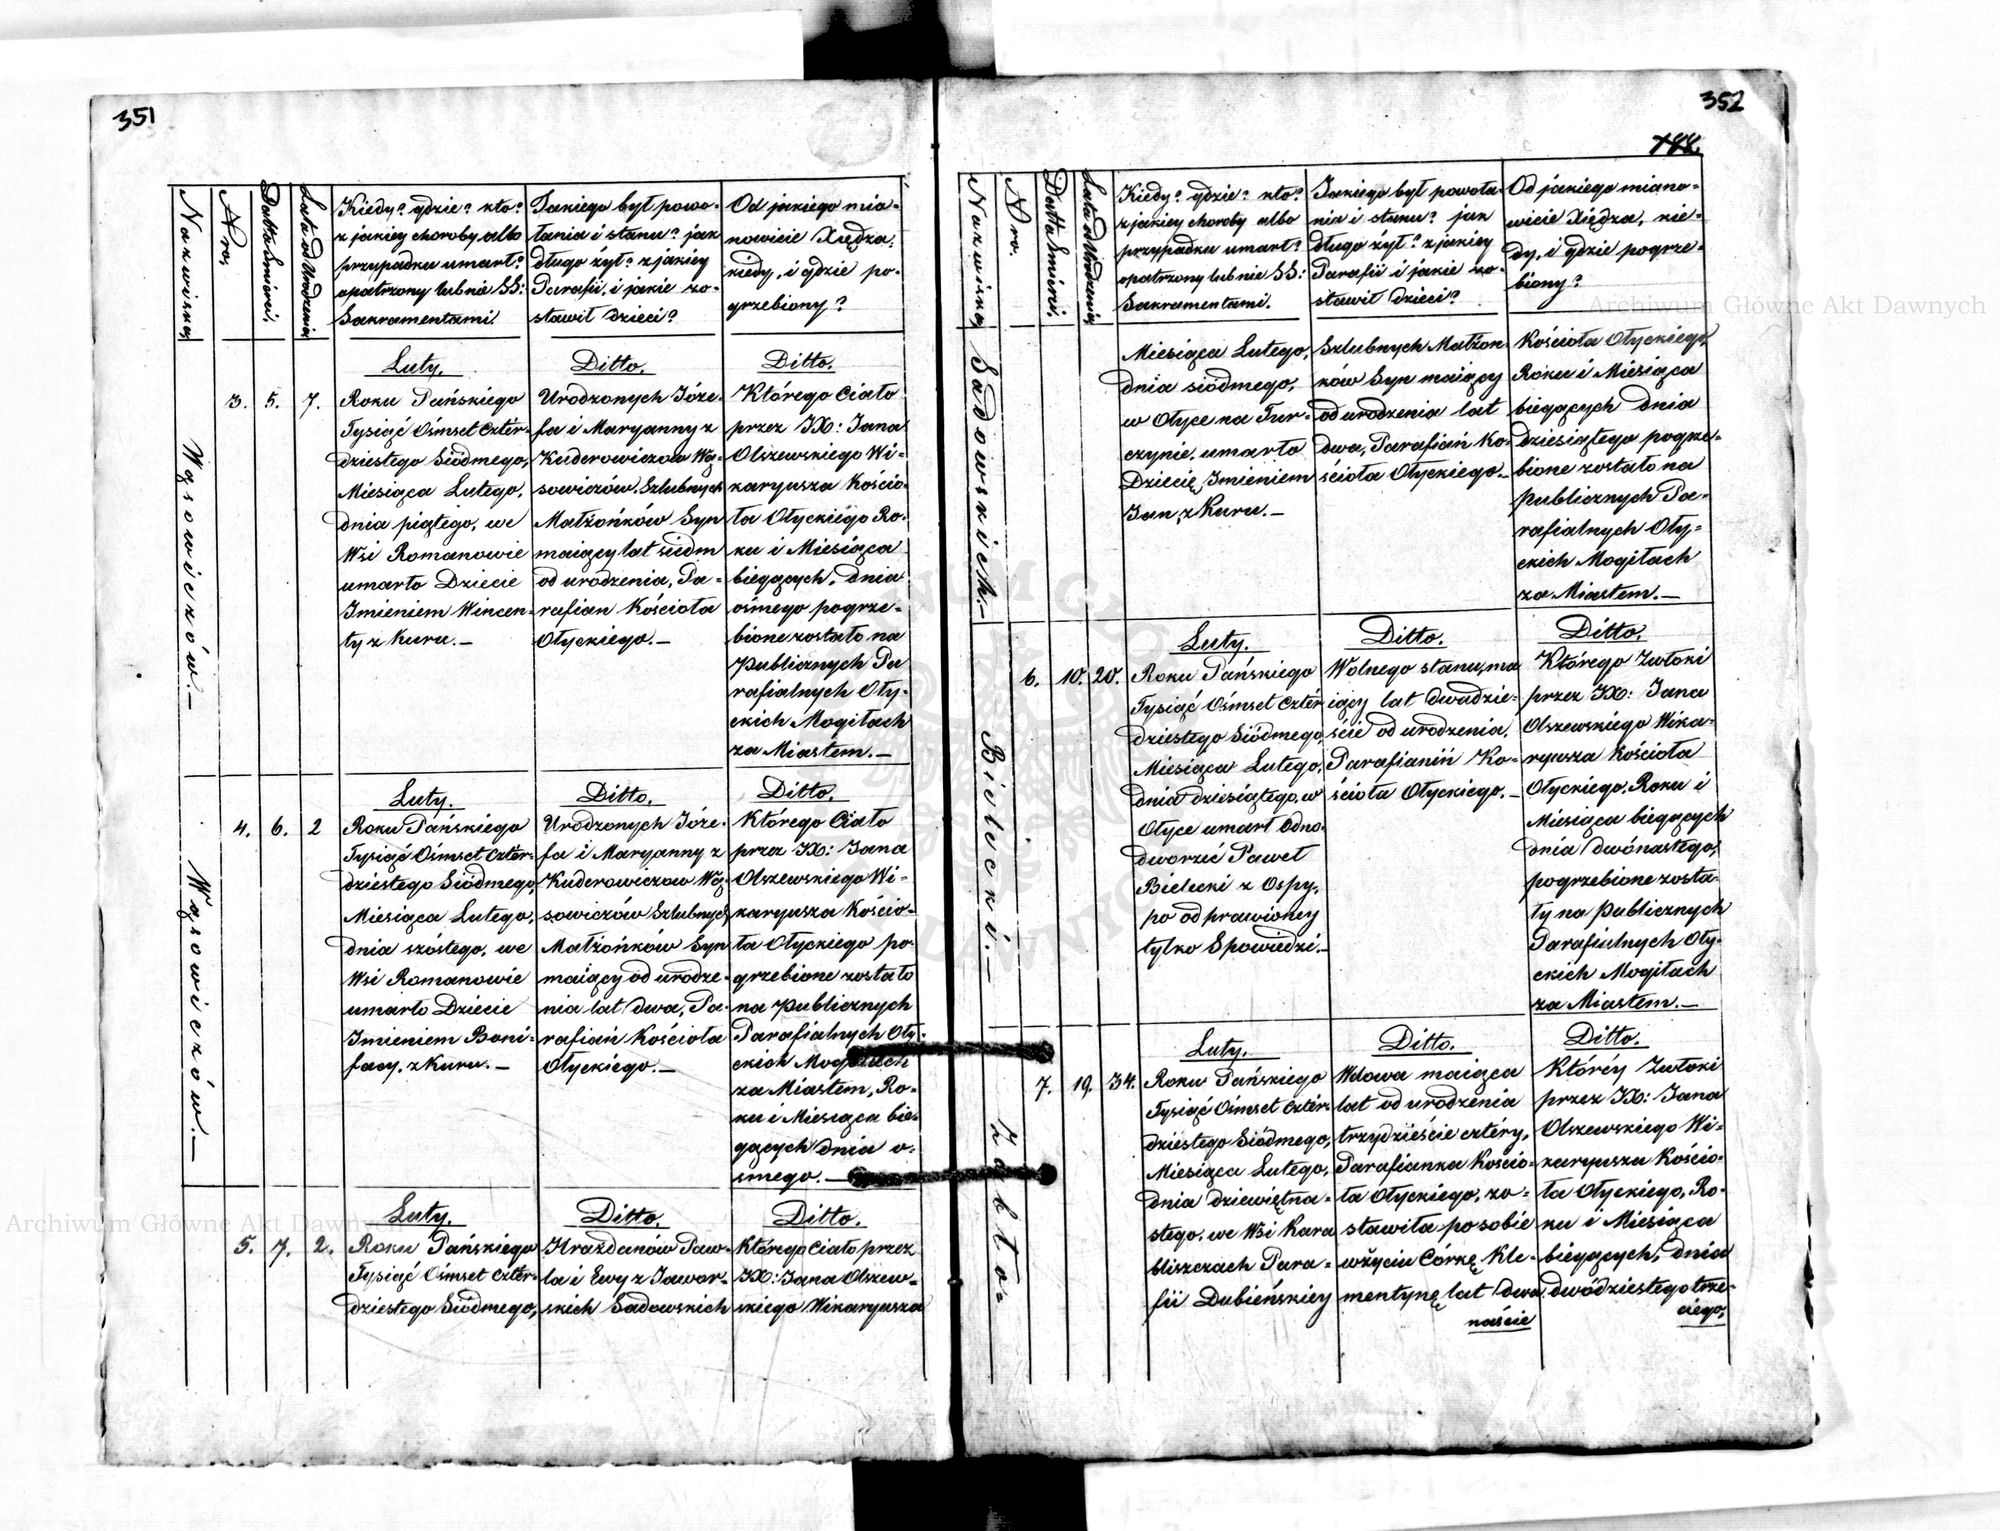 351
Nazwisko
Nro.
Datta Śmierci.
Lata od Urodzenia
Kiedy? gdzie? kto?
z jakiey choroby albo
przypadku umarł?
opatrzony lub nie SS:
Sakramentami.
Jakiego był powo-
łania i stanu? jak
długo żył? z jakiey
Parafii, i jakie zo-
stawił dzieci?
Od jakiego mia-
nowicie Xiędza,
kiedy, i gdzie po-
grzebiony?
Wąsowiczów.-
3. 5. 7.
Luty.
Roku Pańskiego
Tysiąć Ośmset Czter-
dziestego Siódmego,
Miesiąca Lutego,
dnia piątego, we
Wsi Romanowie
umarło Dziecie
Imieniem Wincen-
ty z Kuru.-
Ditto.
Urodzonych Józe-
fa i Maryanny z
Kuderowiczow Wą-
sowiczów, Szlubnych
Małżonków Syn
maiący lat siedm
od urodzenia, Pa-
rafian Kościoła
Ołyckiego.-
Ditto.
Którego Ciało
przez JX: Jana
Olszewskiego Wi-
karyusza Kościo-
ła Ołyckiego Ro-
ku i Miesiąca
biegących, dnia
ośmego pogrze-
bione zostało na
publicznych Pa
rafialnych Oły-
ckich Mogiłach
za Miastem.-
Wąsowiczów.-
4. 6. 2
Luty.
Roku Pańskiego
Tysiąć Ośmset Czter-
dziestego Siódmego,
Miesiąca Lutego,
dnia szóstego, we
Wsi Romanowie
umarło Dziecie
Imieniem Boni-
facy. z Kuru.-
Ditto.
Urodzonych Józe-
fa i Maryanny z
Kuderowiczow Wą-
sowiczów Szlubnych
Małżonków Syn
maiący od urodze-
nia lat dwa, Pa-
rafian Kościoła
Ołyckiego.-
Ditto.
Którego Ciało
przez JX: Jana
Olszewskiego Wi-
karyusza Kościo-
ła Ołyckiego po-
grzebione zostało
na publicznych
Parafialnych Oły-
ckich Mogiłach
za Miastem, Ro-
ku i Miesiąca bie-
gących dnia o-
smego.-
5. 7. 2.
Luty.
Roku Pańskiego
Tysiąć Ośmset Czter-
dziestego Siódmego,
Ditto.
Hrażdanów Paw-
ła i Ewy z Jawor-
skich Sadowskich
Ditto.
Którego Ciało przez
JX: Jana Olszew-
skiego Wikaryusza
352
188.
Nazwisko
Nro.
Datta Śmierci.
Lata od Urodzenia
Kiedy? gdzie? kto?
z jakiey choroby albo
przypadku umarł?
opatrzony lub nie SS:
Sakramentami.
Jakiego był powoła-
nia i stanu? jak
długo żył? z jakiey
Parafii i jakie zo-
stawił dzieci?
Od jakiego miano-
wicie Xiędza, kie-
dy, i gdzie pogrze-
biony?
Sadowskich.-
Miesiąca Lutego,
dnia siódmego,
w Ołyce na Tur-
czynie, umarło
Dziecię Imieniem
Jan, z Kuru.-
Szlubnych Małżon-
ków Syn maiący
od urodzenia lat
dwa, Parafian Ko-
ścioła Ołyckiego.-
Kościoła Ołyckiego,
Roku i Miesiąca
biegących dnia
dziesiątego pogrze-
bione zostało na
publicznych Pa-
rafialnych Oły-
ckich Mogiłach
za Miastem.-
Bielecki.-
6. 10. 20.
Luty.
Roku Pańskiego
Tysiąć Ośmset Czter
dziestego Siódmego,
Miesiąca Lutego,
dnia dziesiątego, w
Ołyce umarł Odno-
dworzec Paweł
Bielecki z Ospy,
po odprawioney
tylko Spowiedzi.-
Ditto.
Wolnego stanu, ma
iący lat dwadzie-
ście od urodzenia,
Parafianin Ko-
ścioła Ołyckiego.-
Ditto.
Którego Zwłoki
przez JX: Jana
Olszewskiego Wika-
ryusza Kościoła
Ołyckiego, Roku i
Miesiąca biegących
dnia dwónastego,
pogrzebione zosta-
ły na publicznych
Parafialnych Oły-
ckich Mogiłach
za Miastem.-
7. 19. 34.
Luty.
Roku Pańskiego
Tysiąć Ośmset Czter-
dziestego Siódmego,
Miesiąca Lutego,
dnia dziewiętna-
stego, we Wsi Kara
bliszczach Para-
fii Dubieńskiey
Ditto.
Wdowa maiąca
lat od urodzenia
trzydzieście cztéry,
Parafianka Kościo-
ła Ołyckiego, zo-
stawiła po sobie
w życiu Córkę Kle-
mentynę lat dwa
naście
Ditto.
Któréy Zwłoki
przez JX: Jana
Olszewskiego Wi-
karyusza Kościo-
ła Ołyckiego, Ro-
ku i Miesiąca
biegących, dnia
dwódziestego trze-
ciego,
Archiwum Główne Akt Dawnych
Archiwum Główne Akt Dawnych